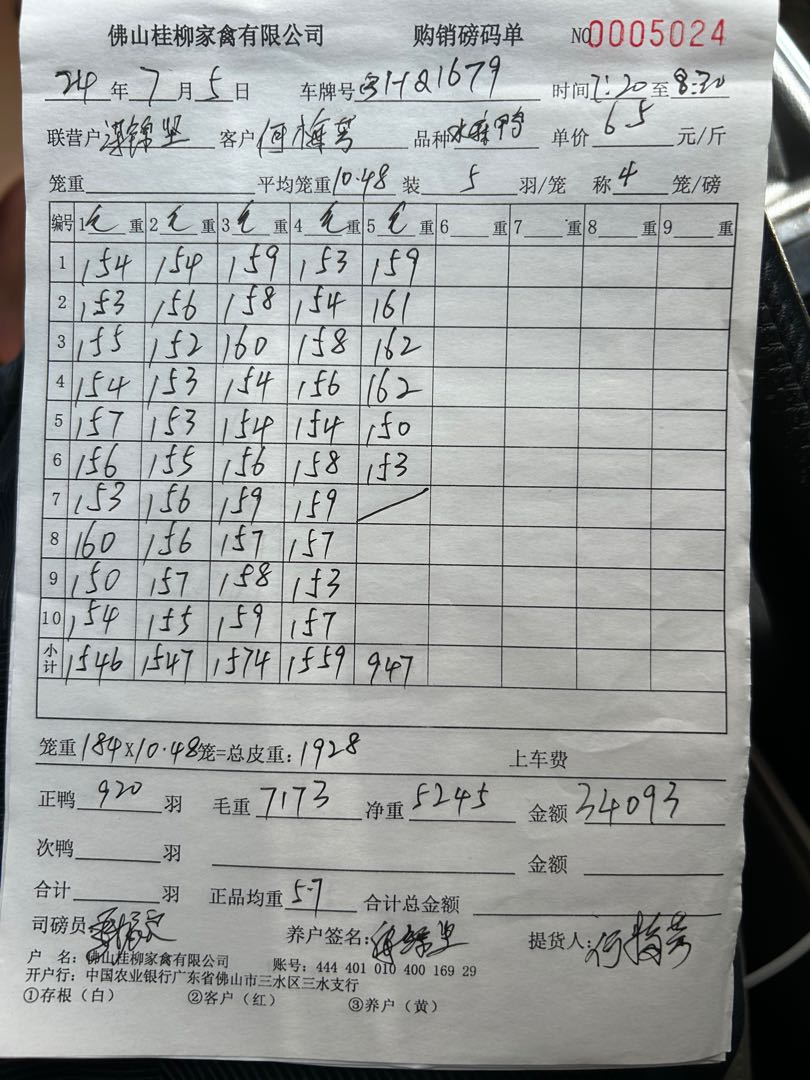 佛山桂柳家禽有限公司 购销磅码单 NO0005024
24年7月5日 车牌号 Q1679 时间7:20至8:20
联营户 客户何梅芳 品种水麻鸭 单价65元/斤
笼重 平均笼重10.48 装5羽/笼 称4笼/磅
编号 1毛重 2毛重 3毛重 4毛重 5毛重 6重 7重 8重 9重
1 154 154 159 153 159
2 153 156 158 154 161
3 155 152 160 158 162
4 154 153 154 156 162
5 157 153 154 154 150
6 156 155 156 158 153
7 153 156 159 159
8 160 156 157 157
9 150 157 158 153
10 154 155 159 157
小计 1546 1547 1574 1559 947
笼重184×10.48笼=总皮重:1928 上车费
正鸭920羽 毛重7173 净重5245 金额34093
次鸭 羽 金额
合计 羽 正品均重5.7 合计总金额
司磅员: 养户签名: 提货人:何梅芳
户 名:佛山桂柳家禽有限公司 账号:444 401 010 400 169 29
开户行:中国农业银行广东省佛山市三水区三水支行
①存根(白) ②客户(红) ③养户(黄)